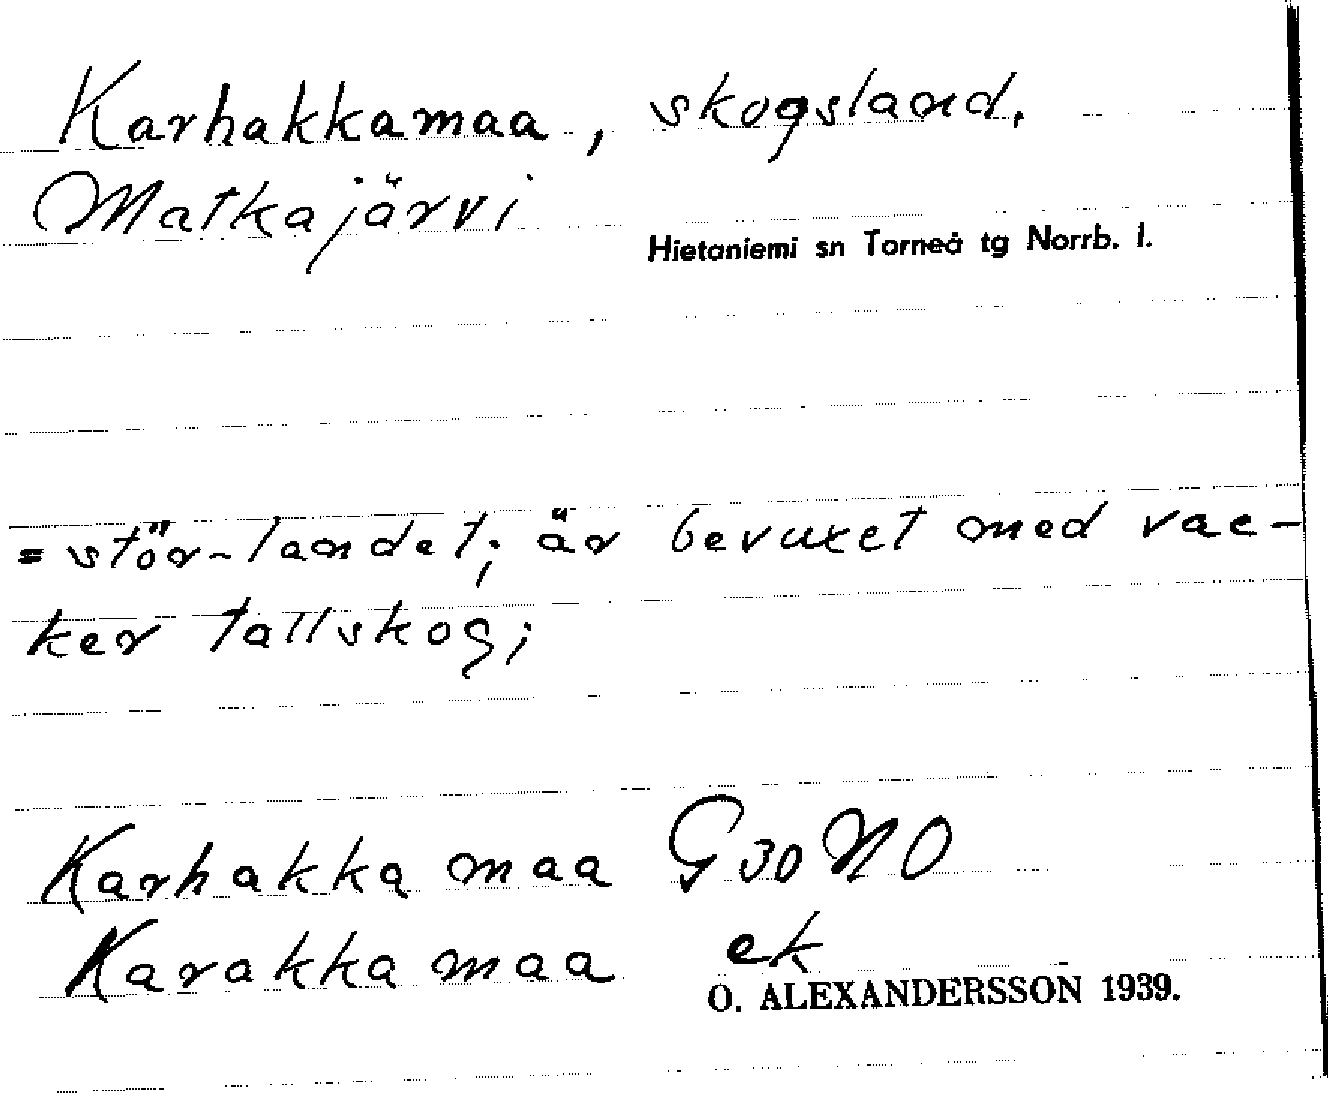 Karhakkamaa, skogsland.
Matkajärvi
Hietaniemi sn Torneå tg Norrb. l.
= stör-landet; är bevuxet med vac-
ker tallskog;
Karhakka maa G 30 NO
Karakka maa ek
O. ALEXANDERSSON 1939.